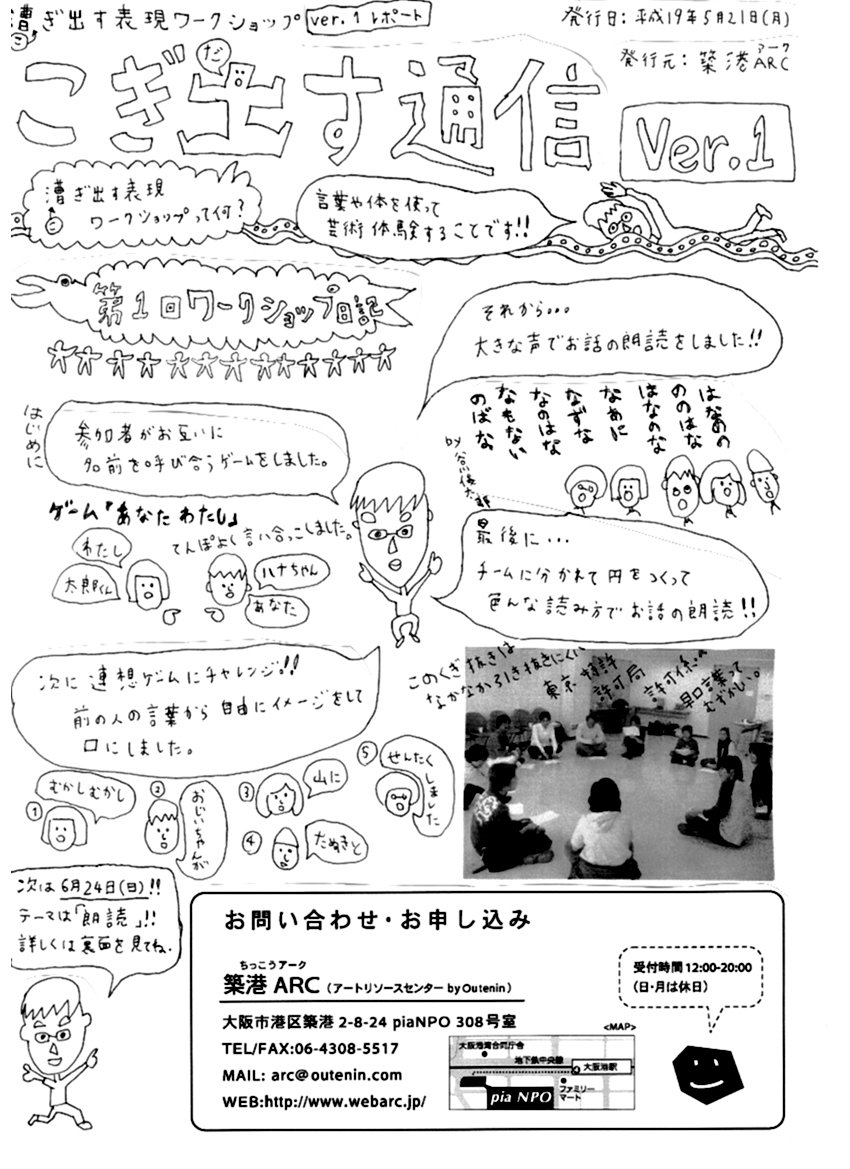 漕ぎ出す表現ワークショップ ver.1 レポート
こ
発行日：平成19年5月21日(月)
発行元：築港ARC
アーク
こぎ出す通信
だ
Ver.1
漕ぎ出す表現
こ
ワークショップって何？
言葉や体を使って
芸術体験することです!!
第1回ワークショップ日記
はじめに
参加者がお互いに
名前を呼び合うゲームをしました。
ゲーム「あなた わたし」
てんぽよく言い合っこしました。
わたし
太郎くん
ハナちゃん
あなた
次に 連想ゲームにチャレンジ!!
前の人の言葉から 自由にイメージをして
口にしました。
①
むかしむかし
②
おじいちゃんが
③
山に
④
たぬきと
⑤
せんたくしました
それから...
大きな声でお話の朗読をしました!!
はなののの
ののはな
はなのな
なあに
なずな
なのはな
なもない
のばな
by 谷川俊太郎
最後に...
チームに分かれて円をつくって
色んな読み方でお話の朗読!!
このくぎ抜きは
なかなか引き抜きにくい
東京特許
許可局
許可係の
早口言葉って
むずかしい。
次は6月24日(日)!!
テーマは「朗読」!!
詳しくは裏面を見てね.
お問い合わせ・お申し込み
ちっこうアーク
築港 ARC（アートリソースセンター by Outenin）
大阪市港区築港 2-8-24 piaNPO 308号室
TEL/FAX:06-4308-5517
MAIL: arc@outenin.com
WEB:http://www.webarc.jp/
受付時間 12:00-20:00
（日・月は休日）
<MAP>
大阪港湾合同庁舎
地下鉄中央線
大阪港駅
ファミリー
マート
pia NPO